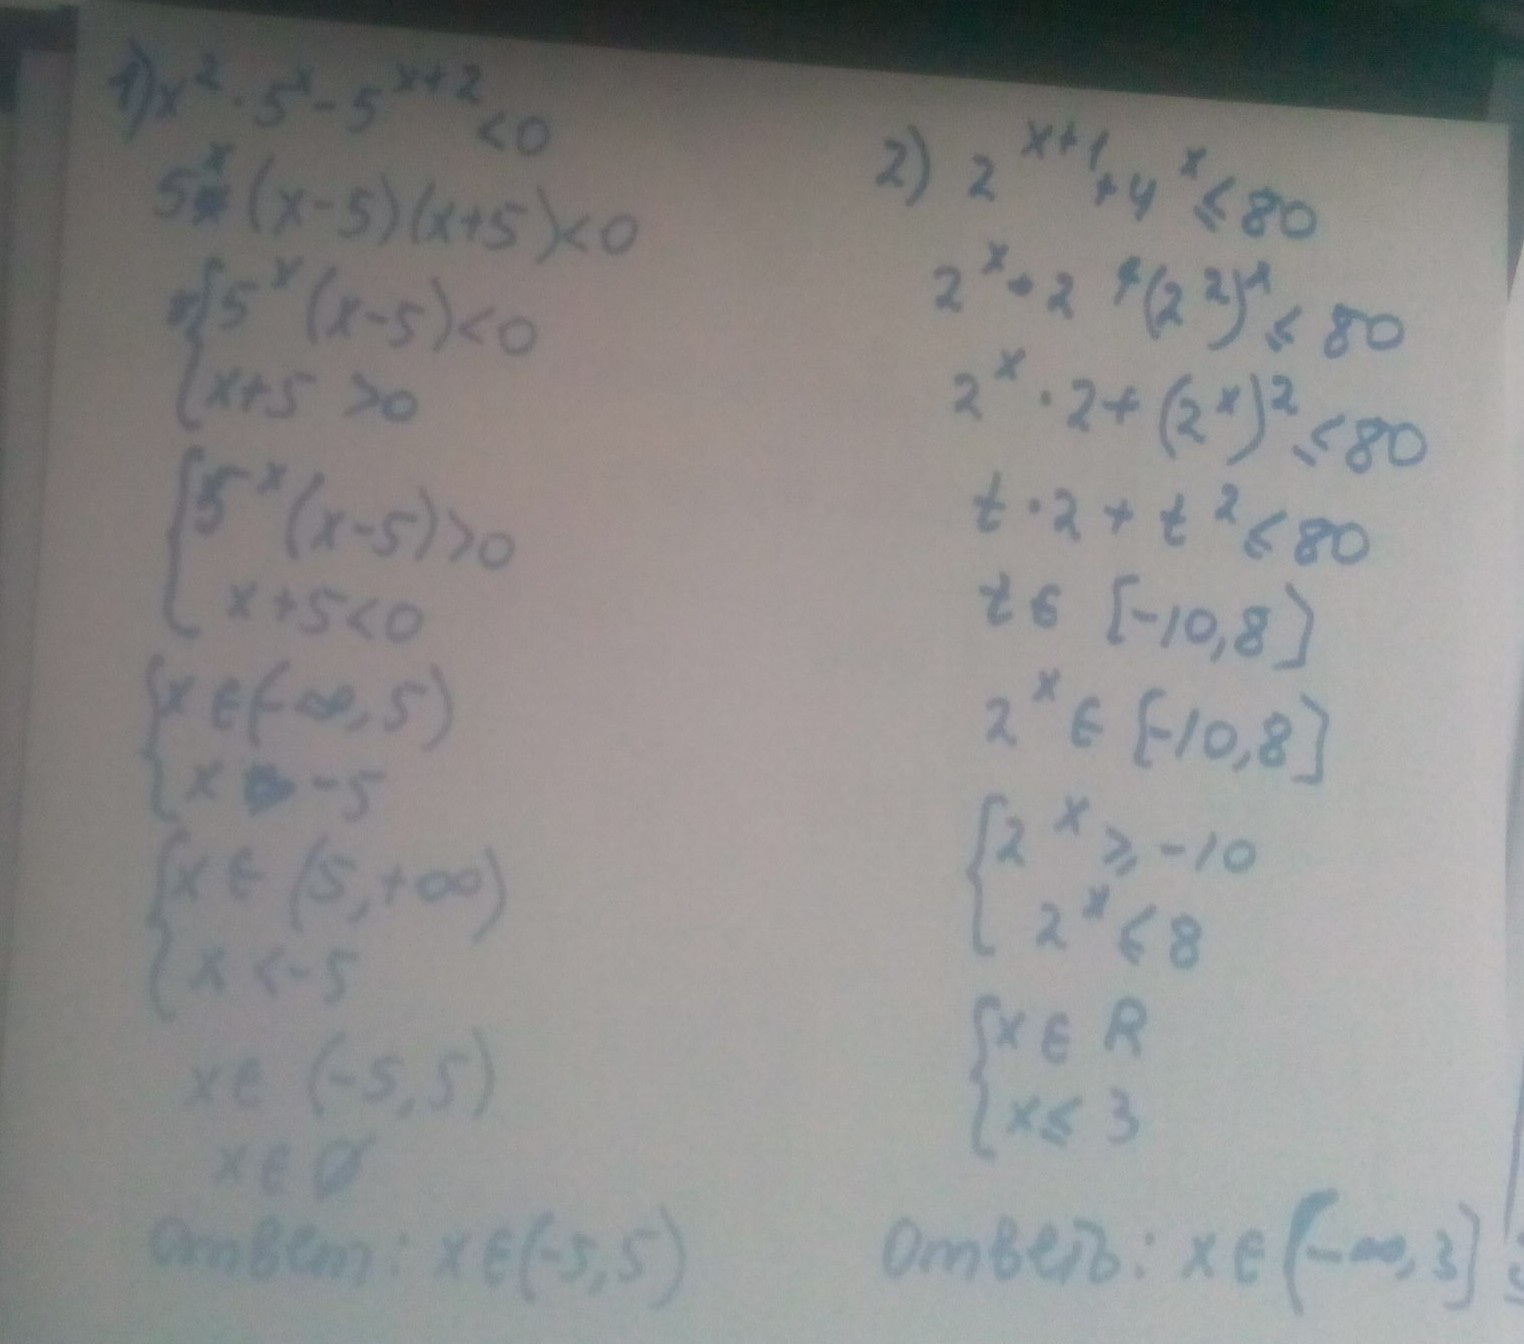 1) x² · 5ˣ - 5ˣ⁺² < 0
5ˣ (x-5)(x+5) < 0
{ 5ˣ (x-5) < 0
x+5 > 0
{ 5ˣ (x-5) > 0
x+5 < 0
{ x ∈ (-∞, 5)
x > -5
{ x ∈ (5, +∞)
x < -5
x ∈ (-5, 5)
x ∈ ∅
Ответ: x ∈ (-5, 5)
2) 2ˣ⁺¹ + 4ˣ ≤ 80
2ˣ · 2 + (2²)ˣ ≤ 80
2ˣ · 2 + (2ˣ)² ≤ 80
t · 2 + t² ≤ 80
t ∈ [-10, 8]
2ˣ ∈ [-10, 8]
{ 2ˣ ≥ -10
2ˣ ≤ 8
{ x ∈ R
x ≤ 3
Ответ: x ∈ (-∞, 3]